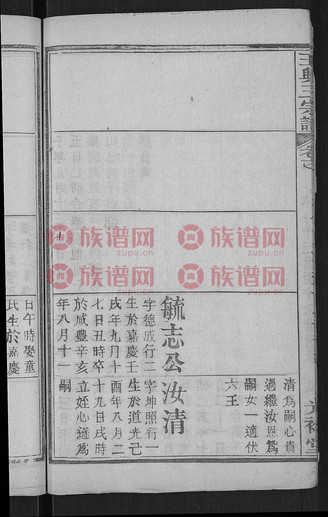 宗譜
清爲嗣心貴
過繼汝恩爲
嗣女一適伏
六王
毓志公 汝清
字德成行二 字坤照行一
生於嘉慶壬 生於道光己
戌年九月十 酉年八月二
七日丑時卒 十九日戌時
於咸豐辛亥 立姪心遜爲
年八月十一 嗣
日午時娶童
氏生於嘉慶
族谱网
zupu.cn
族谱网
zupu.cn